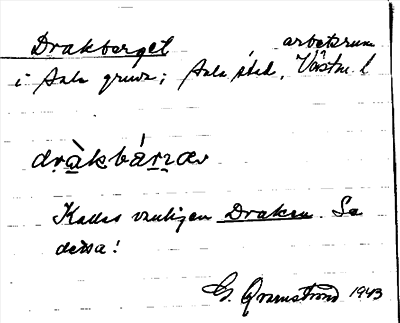 Drakberget arbetsrum
i Sala gruva; Sala stad, Västm. l
dràkbárjæ
Kallas vanligen Draken. Se
dessa!
G. Qvarnström 1943